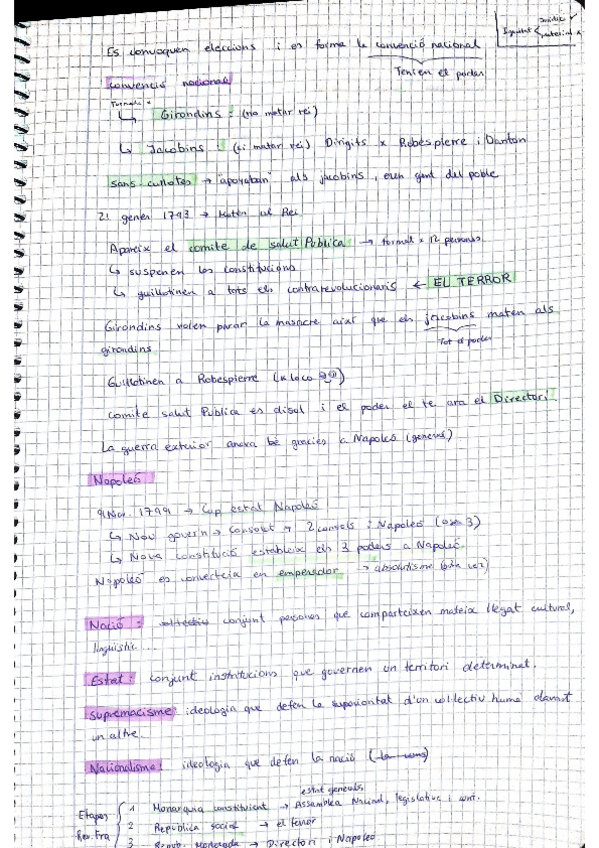 Jurídic ✓
Igualtat < material x
Es convoquen eleccions i es forma la convenció nacional
Tenien el poder
Convenció nacional
Formada x
↳ Girondins : (no matar rei)
↳ Jacobins : (si matar rei) Dirigits x Robespierre i Danton
sans-cullotes → "apoyaban" als jacobins, eren gent del poble
21 gener 1793 → Maten al Rei
Apareix el comite de salut Publica → format x 12 persones
↳ suspenen les constitucions
↳ guillotinen a tots els contrarevolucionaris ← EL TERROR
Girondins volen parar la masacre aixi que els jacobins maten als
girondins
Tot el poder
Guillotinen a Robespierre (x loco)
Comite salut Publica es disol i el poder el te ara el Directori
La guerra exterior anava bé gracies a Napoleó (general)
Napoleó
9 Nov. 1799 → Cop estat Napoleó
↳ Nou govern → Consolat → 2 consols i Napoleó (3)
↳ Nova constitució estableix els 3 poders a Napoleó
Napoleó es converteix en emperador → absolutisme (otra vez)
Nació : conjunt persones que comparteixen mateix llegat cultural,
lingüístic...
Estat : conjunt institucions que governen un territori determinat.
Supremacisme : ideologia que defen la superioritat d'un col·lectiu humà damunt
un altre.
Nacionalisme : ideologia que defen la nació
estat generals,
Etapes
Rev. Fra
1 Monarquia constituient → Assemblea Nacional, legislativa i const.
2 Republica social → el terror
3 Repub. Moderada → Directori i Napoleó